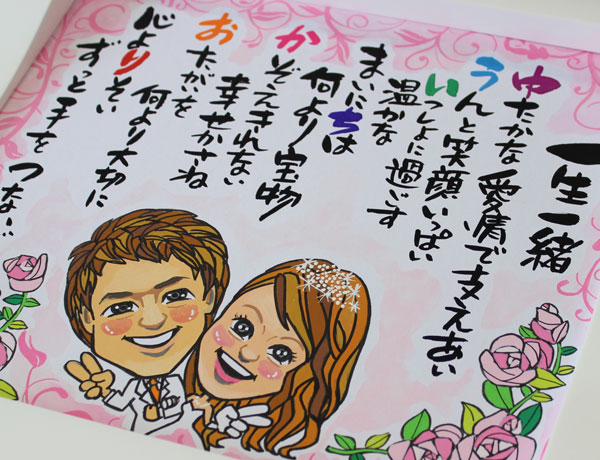 一生一緒
ゆたかな愛情で支えあい
うんと笑顔いっぱい
いっしょに過ごす
温かな
まいにちは
何より宝物
かぞえきれない
幸せかさね
おたがいを
何より大切に
心よりそい
ずっと手をつない